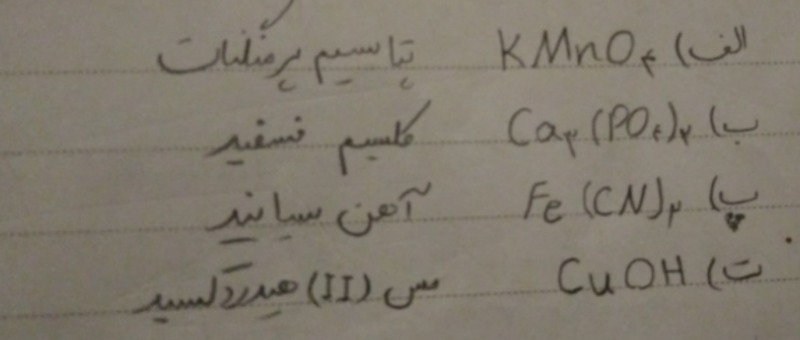 الف) KMnO۴ پتاسیم پرمنگنات
ب) Ca۳(PO۴)۲ کلسیم فسفید
پ) Fe(CN)۲ آهن سیانید
ت) CuOH مس (II) هیدروکسید